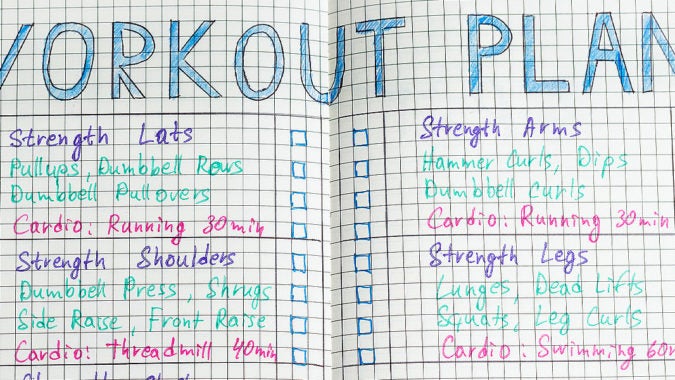 WORKOUT PLAN
Strength Lats
Pullups, Dumbbell Rows
Dumbbell Pullovers
Cardio: Running 30min
Strength Shoulders
Dumbbell Press, Shrugs
Side Raise, Front Raise
Cardio: threadmill 40min
Strength Arms
Hammer Curls, Dips
Dumbbell Curls
Cardio: Running 30min
Strength Legs
Lunges, Dead Lifts
Squats, Leg Curls
Cardio: Swimming